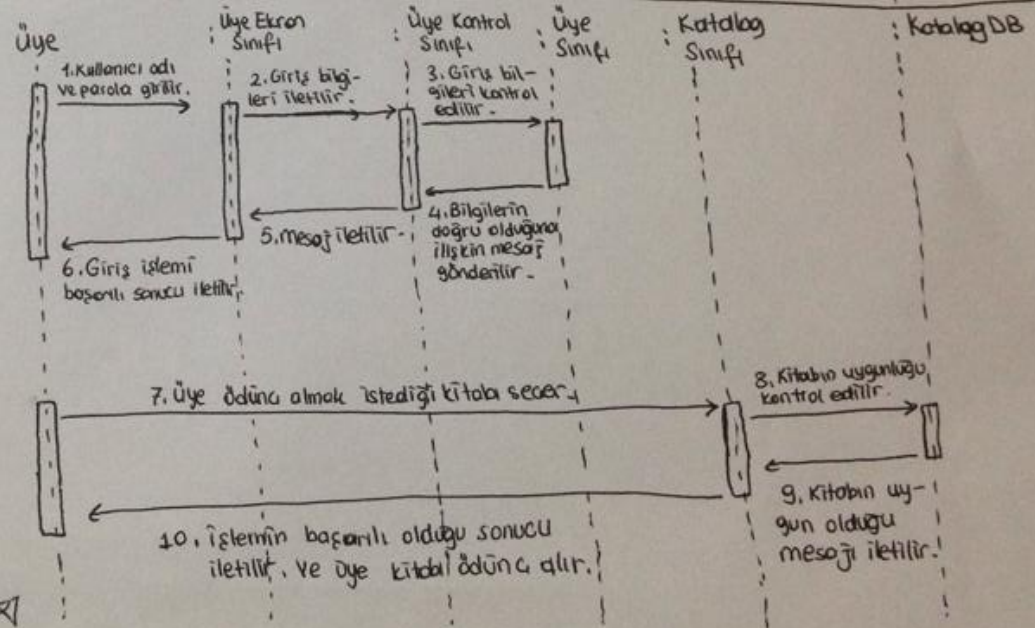 Üye
: Üye Ekran
Sınıfı
: Üye Kontrol
Sınıfı
: Üye
Sınıfı
: Katalog
Sınıfı
: Katalog DB
1.Kullanıcı adı
ve parola girilir.
2.Giriş bilgi-
leri iletilir.
3.Giriş bil-
gileri kontrol
edilir.
4.Bilgilerin
doğru olduğuna
ilişkin mesaj
gönderilir.
5.Mesaj iletilir.
6.Giriş işlemi
başarılı sonucu iletilir.
7.Üye ödünç almak istediği kitabı seçer.
8.Kitabın uygunluğu
kontrol edilir.
9.Kitabın uy-
gun olduğu
mesajı iletilir.
10.İşlemin başarılı olduğu sonucu
iletilir. ve üye kitabı ödünç alır.